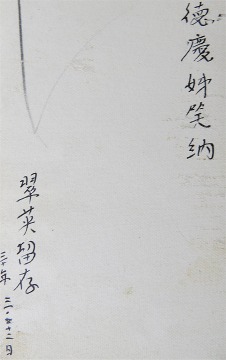 德慶姊笑納
翠英留存
三十年
三·五十二日